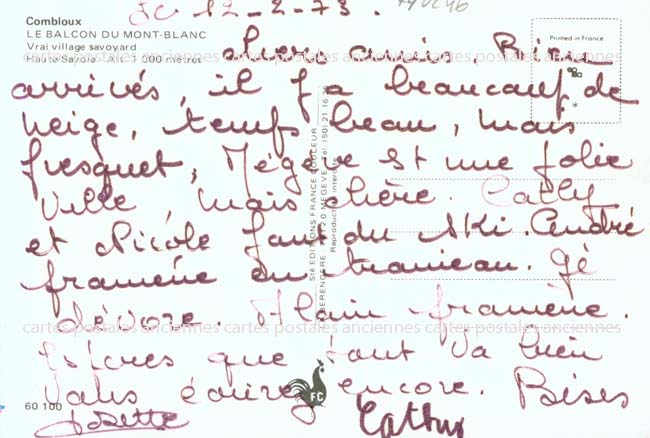 Le 12-2-73.
Combloux
LE BALCON DU MONT-BLANC
Vrai village savoyard
Haute-Savoie Alt. 1 000 mètres
Printed in France
chers amis, Bien
arrivés, il y a beaucoup de
neige, temps beau, mais
frisquet, Mégève est une jolie
ville mais chère. Cathy
et Nicole font du ski. André
promène en traineau. Gé
dévore. Alain promène.
Espères que tout va bien
Vous écrirez encore. Bises
Josette Cathy
60 100
FC
Sté EDITIONS FRANCE COULEUR
74120 MEGEVE - Tél. (50) 21 16
Reproduction interdite
cartes postales anciennes cartes postales anciennes cartes postales anciennes